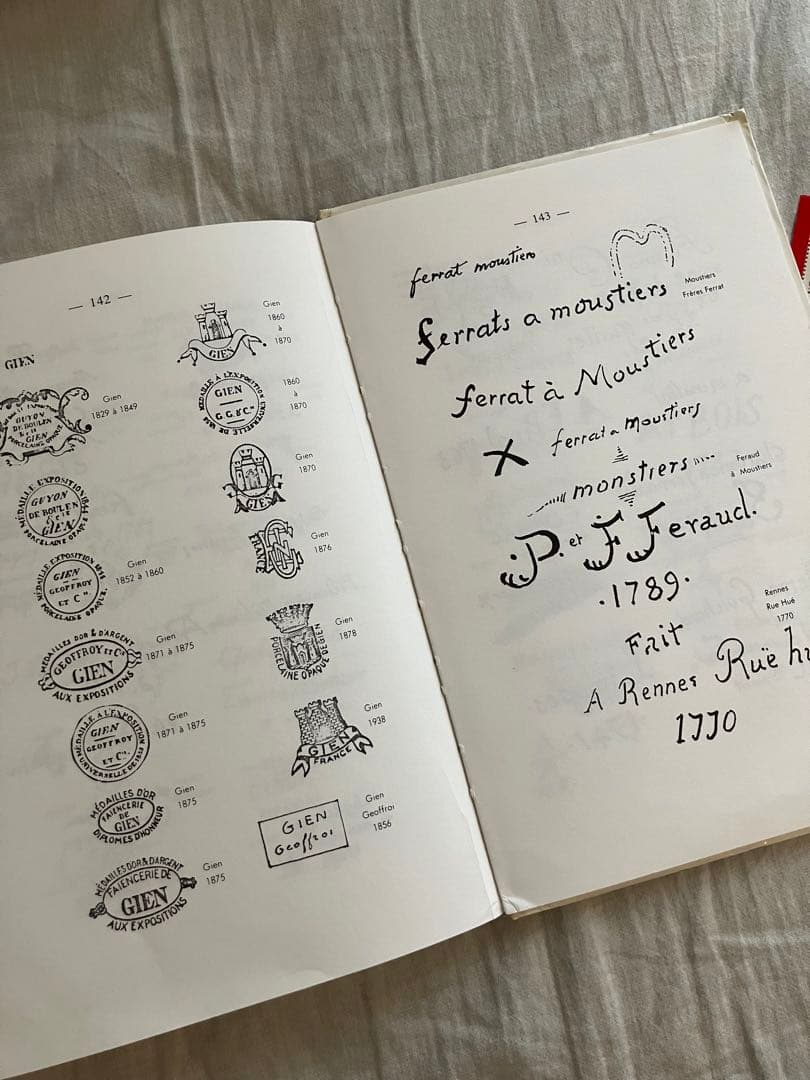 — 142 —
GIEN
GUYON
DE BOULEN
GIEN
PORCELAINE OPAQUE
Gien
1829 à 1849
MÉDAILLE EXPOSITION 1844
GUYON
DE BOULEN
& Cie
GIEN
PORCELAINE OPAQUE
MÉDAILLE EXPOSITION 1844
GIEN
GEOFFROY
ET Cie
PORCELAINE OPAQUE
Gien
1852 à 1860
MÉDAILLES D'OR & D'ARGENT
GEOFFROY et Cie
GIEN
AUX EXPOSITIONS
Gien
1871 à 1875
MÉDAILLE A L'EXPOSITION
GIEN
GEOFFROY
ET Cie
UNIVERSELLE DE 1855
Gien
1871 à 1875
MÉDAILLES D'OR
FAIENCERIE
DE
GIEN
DIPLOMES D'HONNEUR
Gien
1875
MÉDAILLES D'OR & D'ARGENT
FAIENCERIE DE
GIEN
AUX EXPOSITIONS
Gien
1875
GIEN
Gien
1860
à
1870
MÉDAILLE A L'EXPOSITION
GIEN
G.G. & Cie
UNIVERSELLE DE 1855
1860
à
1870
GIEN
Gien
1870
FRANCE
GIEN
Gien
1876
PORCELAINE OPAQUE DE GIEN
Gien
1878
GIEN
FRANCE
Gien
1938
GIEN
Geoffroi
Gien
Geoffroi
1856
— 143 —
ferrat moustiers
Moustiers
Frères Ferrat
ferrats a moustiers
ferrat à Moustiers
X ferrat a moustiers
monstiers
Feraud
à Moustiers
P. et F Feraud.
·1789·
Rennes
Rue Hué
1770
Fait
A Rennes Ruë hu
1770